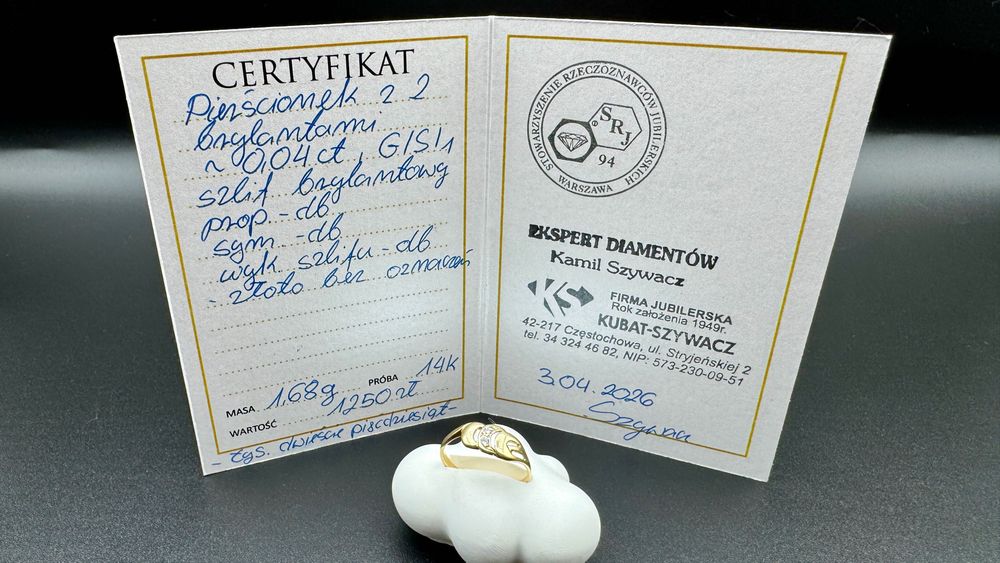 CERTYFIKAT
Pierścionek z 2
brylantami
~ 0,04 ct, G/SI1
szlif brylantowy
prop. - db
sym. - db
wyk. szlifu - db
- złoto bez oznaczeń
MASA 1,68g PRÓBA 14k
WARTOŚĆ 1250 zł
- tys. dwieście pięćdziesiąt -
STOWARZYSZENIE RZECZOZNAWCÓW JUBILERSKICH
SRJ
94
WARSZAWA
EKSPERT DIAMENTÓW
Kamil Szywacz
KS
FIRMA JUBILERSKA
Rok założenia 1949r.
KUBAT-SZYWACZ
42-217 Częstochowa, ul. Stryjeńskiej 2
tel. 34 324 46 82, NIP: 573-230-09-51
3.04.2026